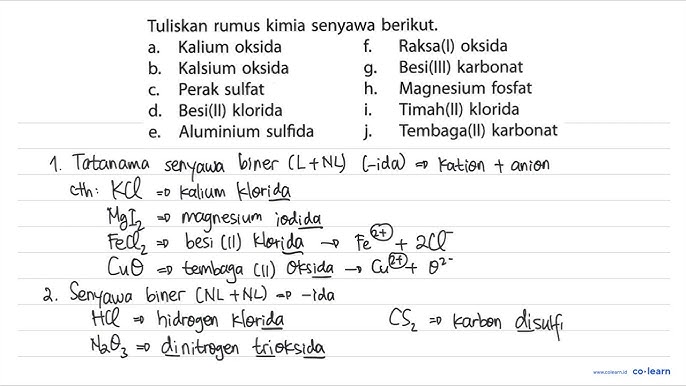 Tuliskan rumus kimia senyawa berikut.
a. Kalium oksida
b. Kalsium oksida
c. Perak sulfat
d. Besi(II) klorida
e. Aluminium sulfida
f. Raksa(I) oksida
g. Besi(III) karbonat
h. Magnesium fosfat
i. Timah(II) klorida
j. Tembaga(II) karbonat
1. Tatanama senyawa biner (L+NL) (-ida) ⇒ kation + anion
cth: KCl ⇒ kalium klorida
MgI₂ ⇒ magnesium iodida
FeCl₂ ⇒ besi (II) klorida → Fe²⁺ + 2Cl⁻
CuO ⇒ tembaga (II) oksida → Cu²⁺ + O²⁻
2. Senyawa biner (NL+NL) ⇒ -ida
HCl ⇒ hidrogen klorida CS₂ ⇒ karbon disulfi
N₂O₃ ⇒ dinitrogen trioksida
www.colearn.id co·learn